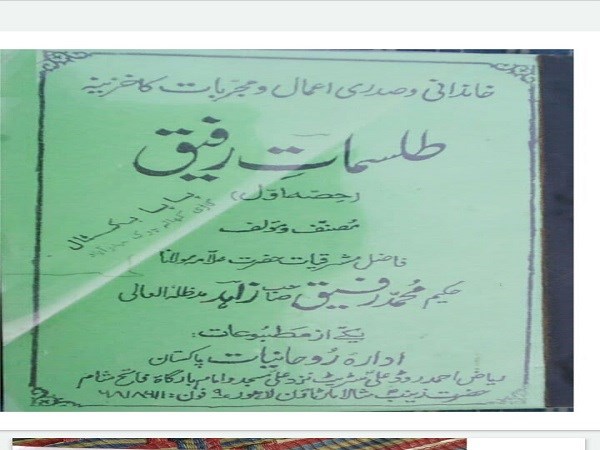 خاندانی و صدری اعمال و مجربات کا خزینہ
طلسماتِ رفیق
(حصہ اول)
مصنف و مؤلف
فاضل مشرقیات حضرت علامہ مولانا
حکیم محمد رفیق صاحب زاہد مدظلہ العالی
یکے از مطبوعات:
ادارہ روحانیات پاکستان
ریاض احمد روڈ علی سٹریٹ نزد علی مسجد و امام بارگاہ فاتح شام
حضرت زینبؑ شالامار ٹاؤن لاہور ۹ فون:
بابا بکسٹال